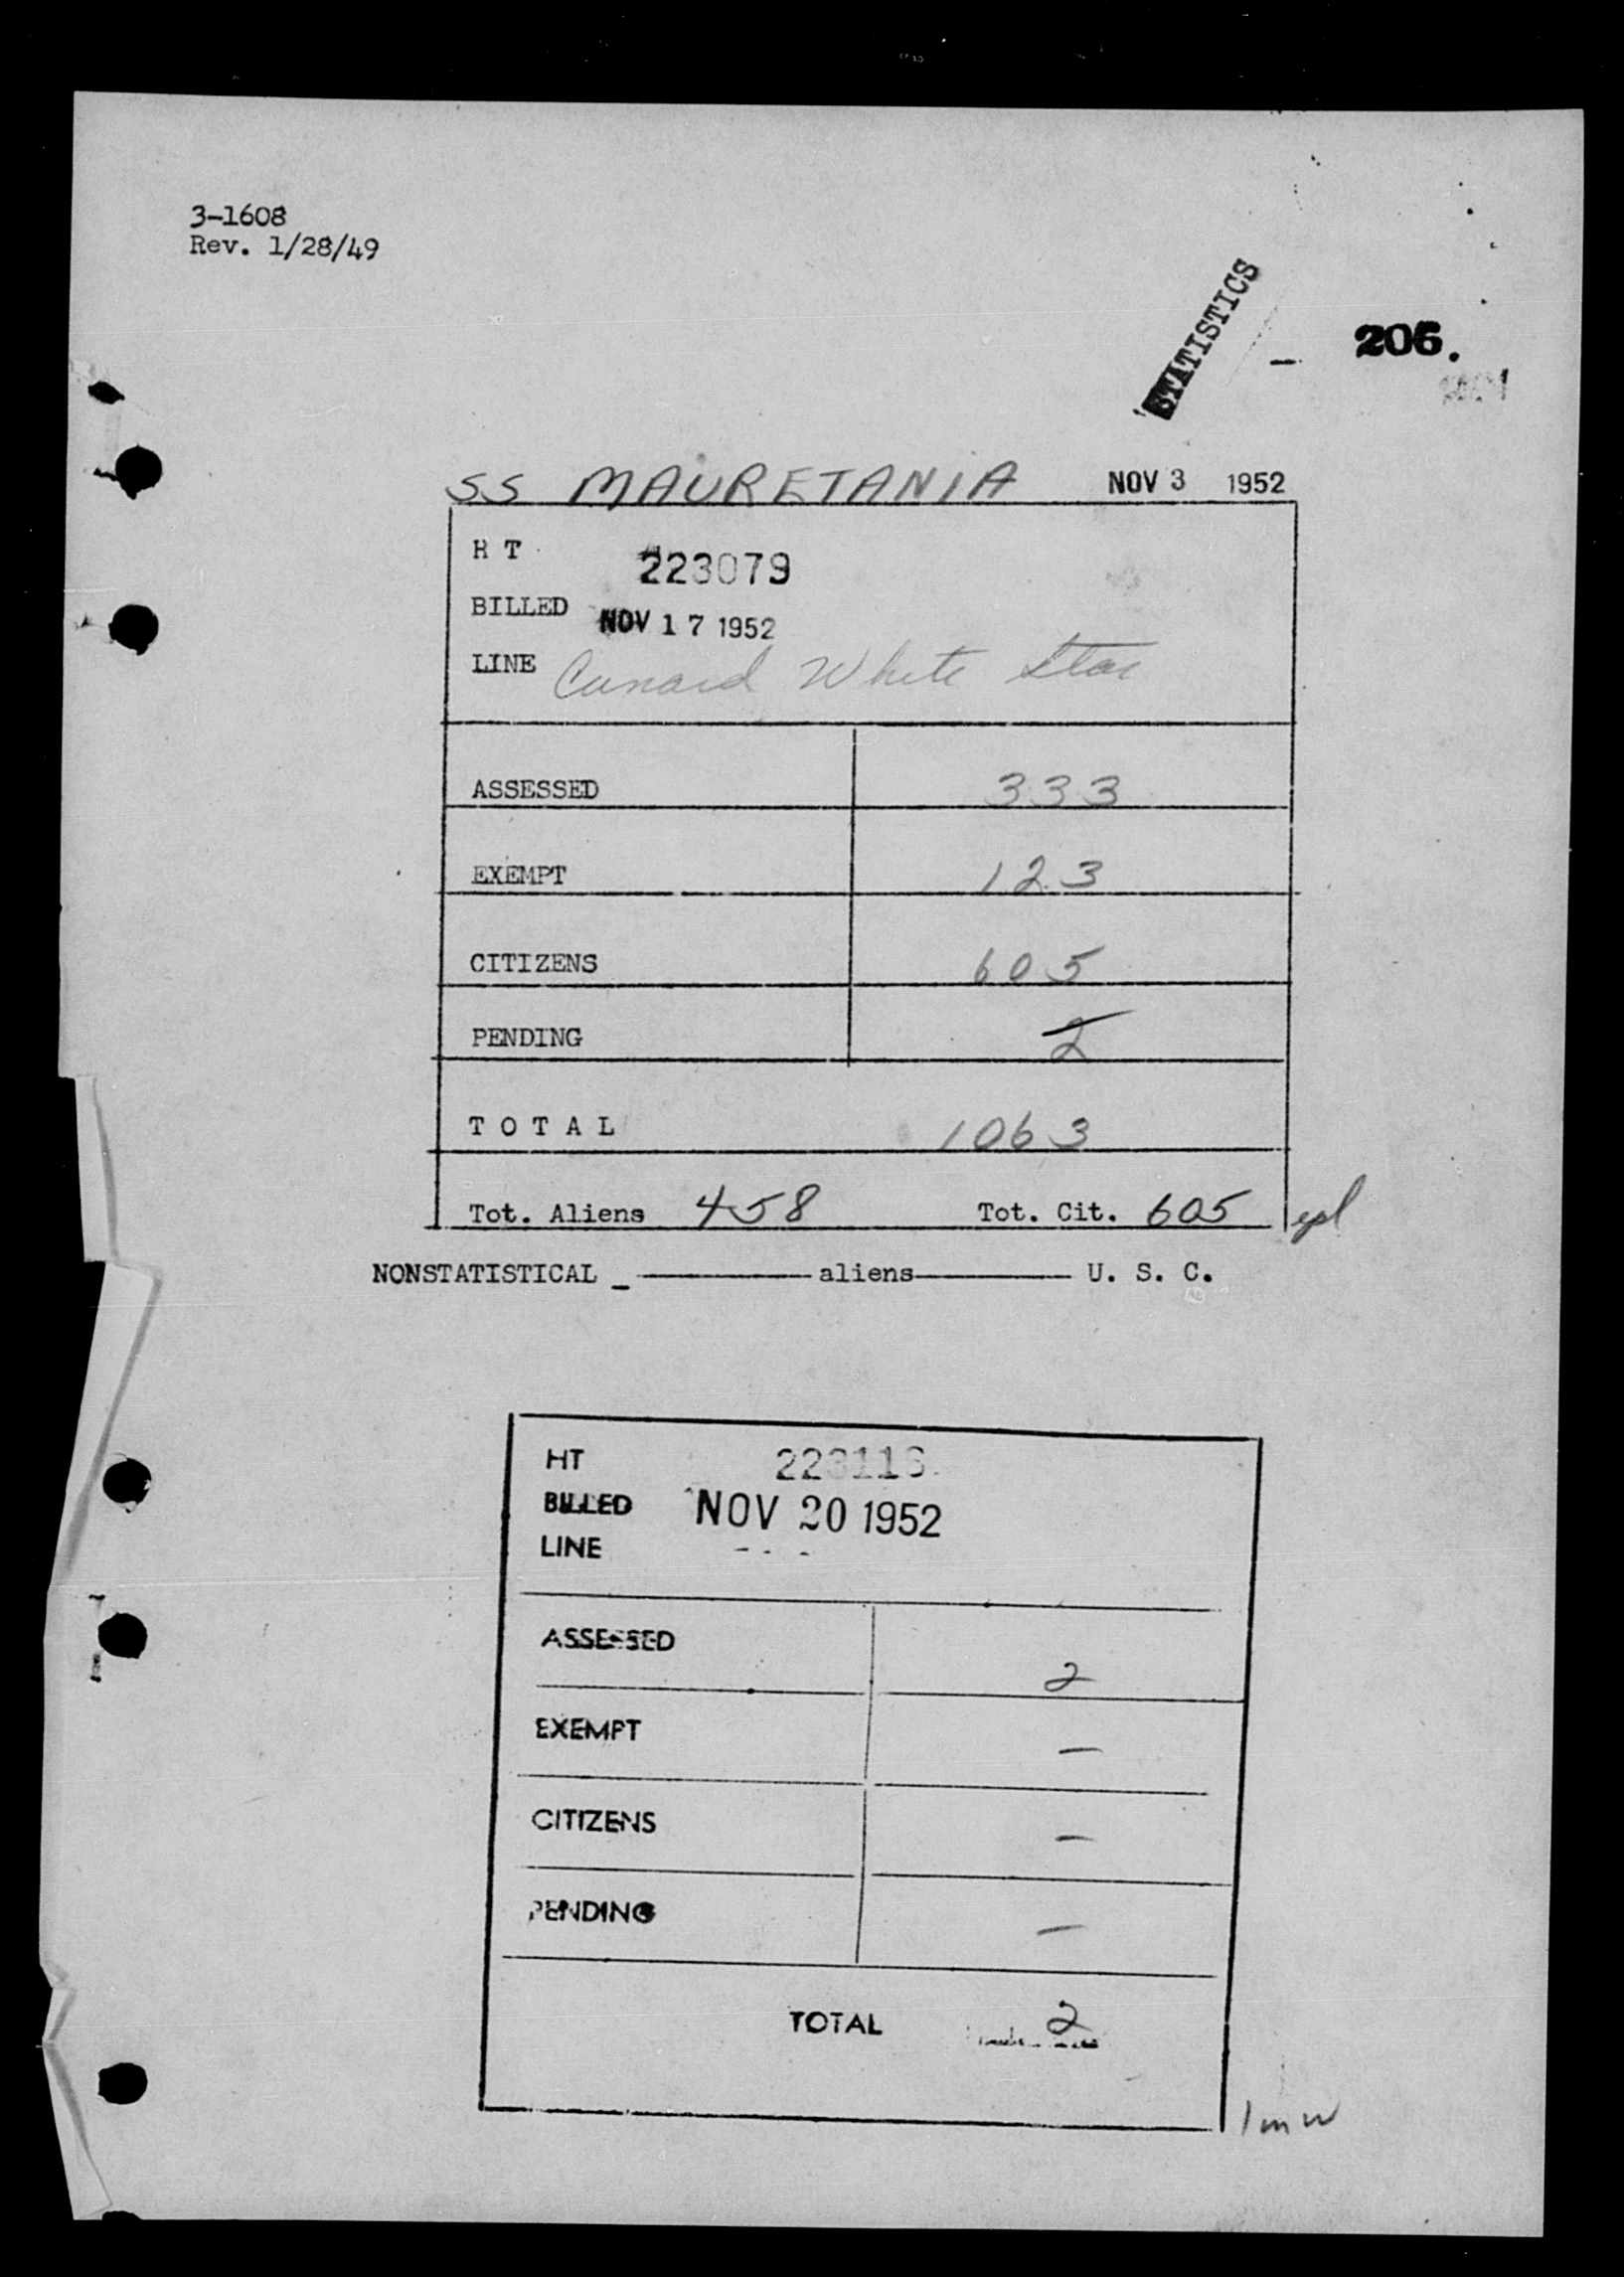 3-1608
Rev. 1/28/49
STATISTICS
206.
SS MAURETANIA NOV 3 1952
H T 223079
BILLED NOV 17 1952
LINE Cunard White Star
ASSESSED 333
EXEMPT 123
CITIZENS 605
PENDING 2
TOTAL 1063
Tot. Aliens 458 Tot. Cit. 605
NONSTATISTICAL _ ———— aliens ———— U. S. C.
HT
BILLED NOV 20 1952
LINE
ASSESSED 2
EXEMPT —
CITIZENS —
PENDING —
TOTAL 2